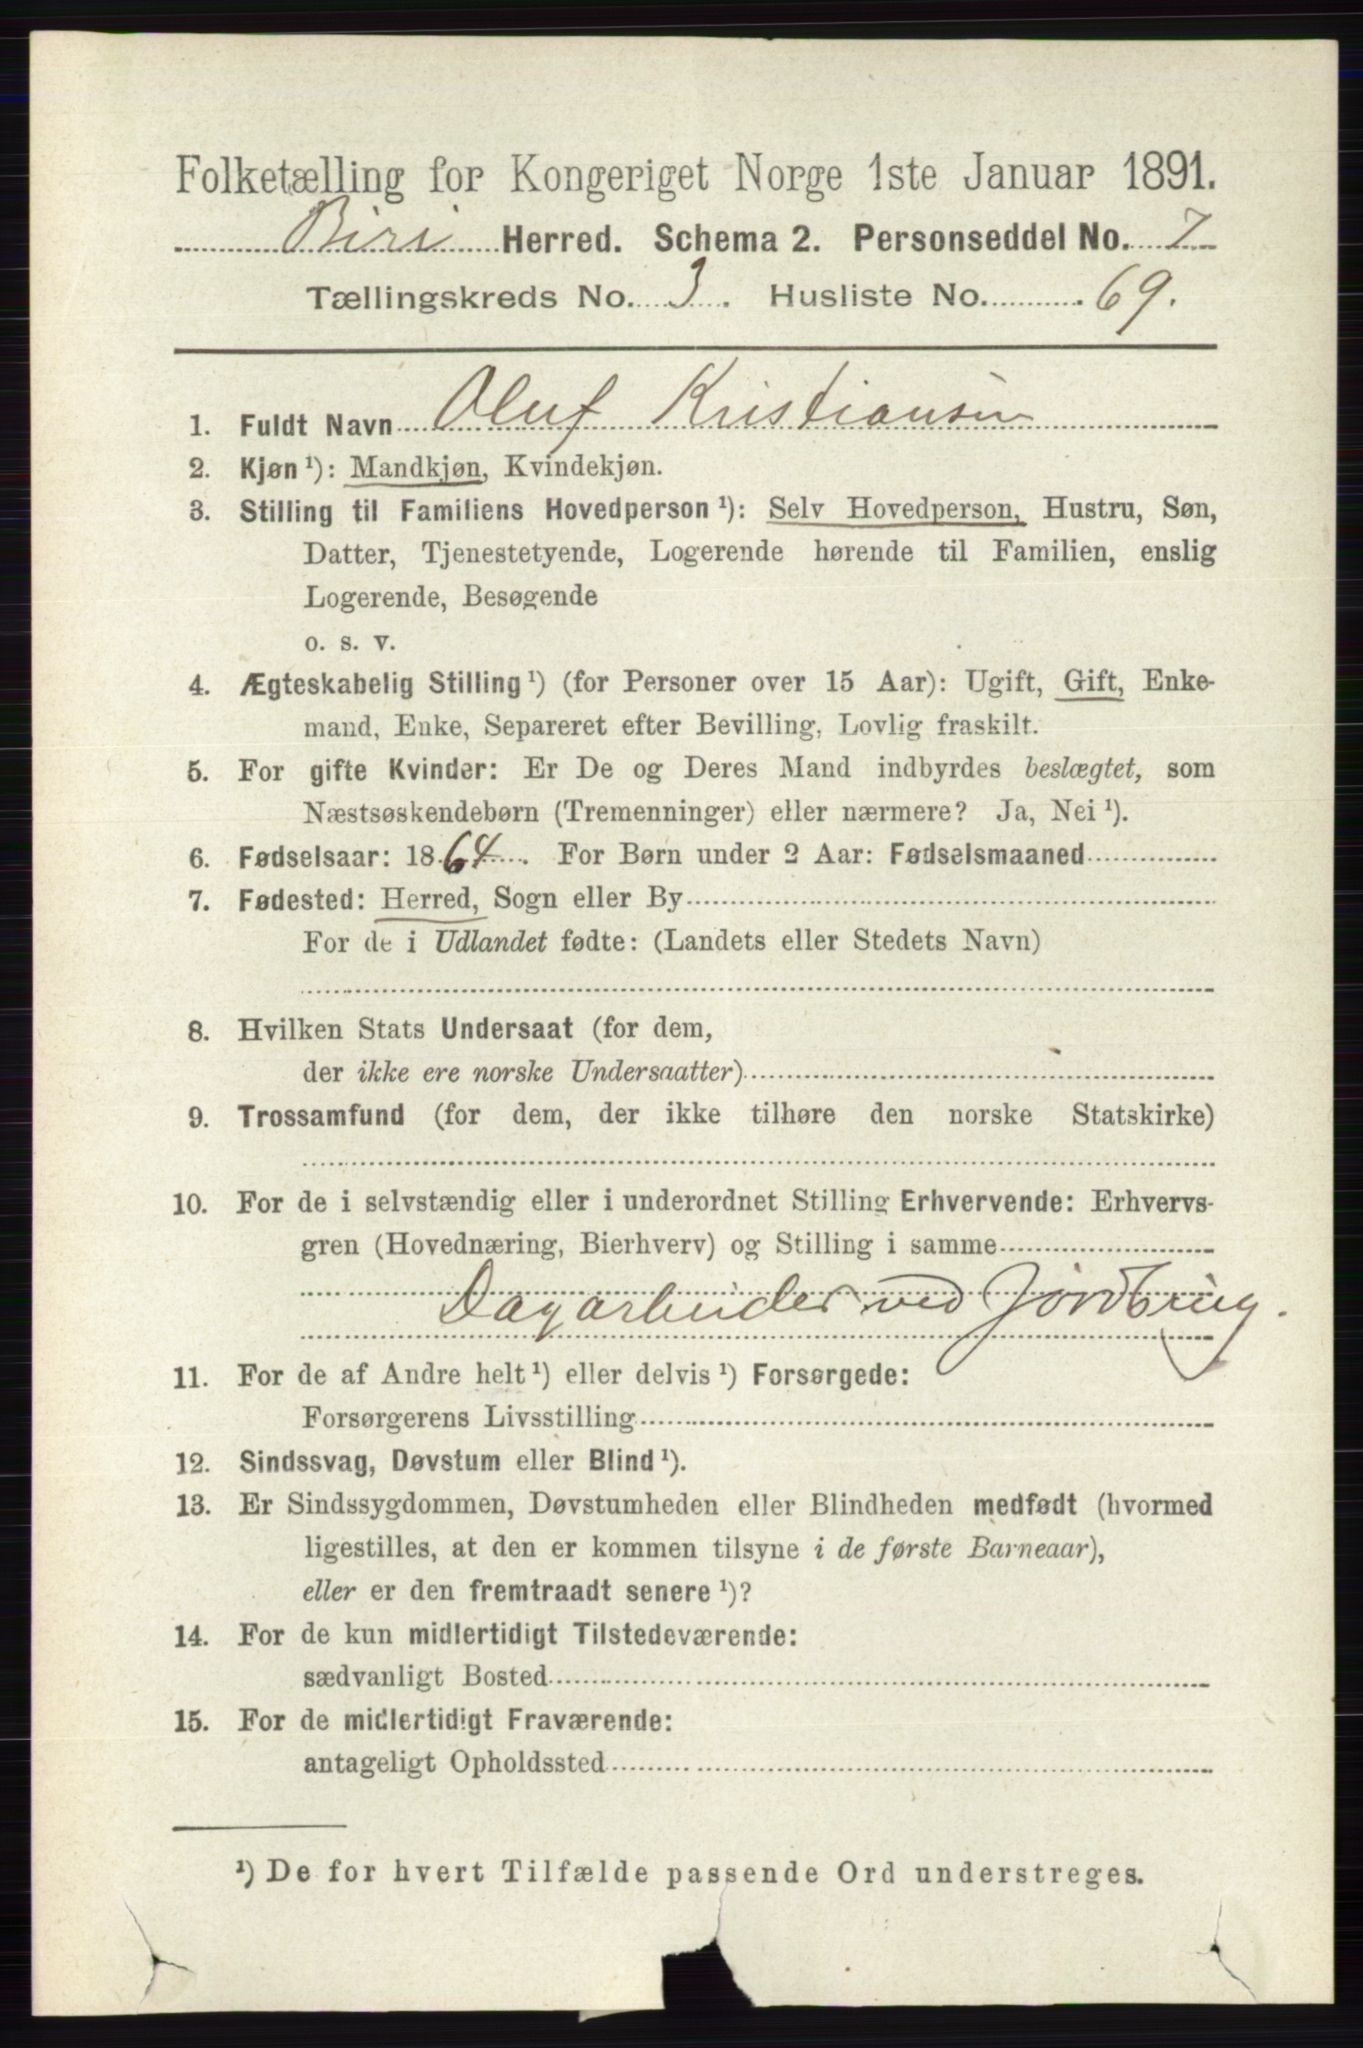 Folketælling for Kongeriget Norge 1ste Januar 1891.
Biri Herred. Schema 2. Personseddel No. 7
Tællingskreds No. 3. Husliste No. 69.
1. Fuldt Navn Oluf Kristiansen
2. Kjøn ¹): Mandkjøn, Kvindekjøn.
3. Stilling til Familiens Hovedperson ¹): Selv Hovedperson, Hustru, Søn,
Datter, Tjenestetyende, Logerende hørende til Familien, enslig
Logerende, Besøgende
o. s. v.
4. Ægteskabelig Stilling ¹) (for Personer over 15 Aar): Ugift, Gift, Enke-
mand, Enke, Separeret efter Bevilling, Lovlig fraskilt.
5. For gifte Kvinder: Er De og Deres Mand indbyrdes beslægtet, som
Næstsøskendebørn (Tremenninger) eller nærmere? Ja, Nei ¹).
6. Fødselsaar: 1864. For Børn under 2 Aar: Fødselsmaaned
7. Fødested: Herred, Sogn eller By
For de i Udlandet fødte: (Landets eller Stedets Navn)
8. Hvilken Stats Undersaat (for dem,
der ikke ere norske Undersaatter)
9. Trossamfund (for dem, der ikke tilhøre den norske Statskirke)
10. For de i selvstændig eller i underordnet Stilling Erhvervende: Erhvervs-
gren (Hovednæring, Bierhverv) og Stilling i samme
Dagarbeider ved Jordbrug.
11. For de af Andre helt ¹) eller delvis ¹) Forsørgede:
Forsørgerens Livsstilling
12. Sindssvag, Døvstum eller Blind ¹).
13. Er Sindssygdommen, Døvstumheden eller Blindheden medfødt (hvormed
ligestilles, at den er kommen tilsyne i de første Barneaar),
eller er den fremtraadt senere ¹)?
14. For de kun midlertidigt Tilstedeværende:
sædvanligt Bosted
15. For de midlertidigt Fraværende:
antageligt Opholdssted
¹) De for hvert Tilfælde passende Ord understreges.